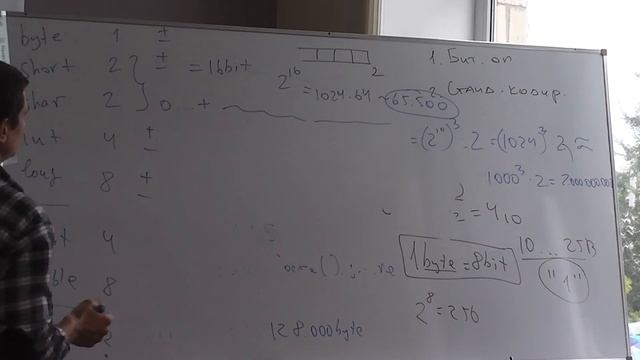 byte 1 ±
short 2 ± = 16bit
char 2 0...+
int 4 ±
long 8 ±
4
8
2
2^16 = 1024.64 ~ 65.500
1. Бит. оп
2. Станд. кодир.
= (2^10)^3 . 2 = (1024)^3 2 ≈
1000^3 . 2 = 2000000000
= 4_10
1byte = 8bit
2^8 = 256
"1"
128.000byte